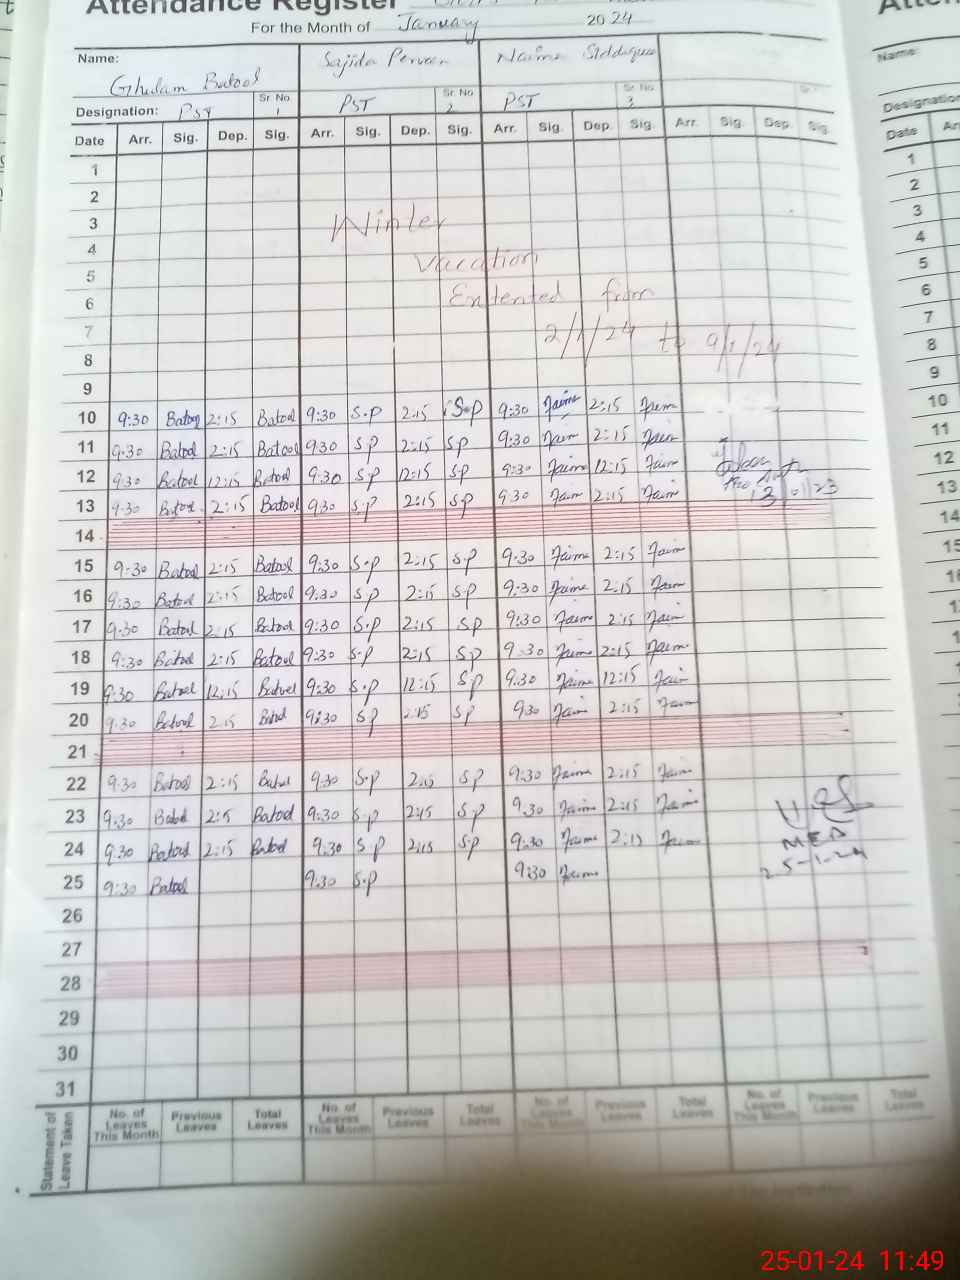 Attendance Register
For the Month of January 2024
Name: Ghulam Batool Sajida Perveen Naima Siddiqua
Designation: PST Sr. No. 1 PST Sr. No. 2 PST Sr. No. 3
Date Arr. Sig. Dep. Sig. Arr. Sig. Dep. Sig. Arr. Sig. Dep. Sig. Arr. Sig. Dep. Sig.
1
2
3 Winter
4
5 Vacation
6 Extented from
7 2/1/24 to 9/1/24
8
9
10 9:30 Batool 2:15 Batool 9:30 S.P 2:15 S.P 9:30 Naima 2:15 Naim
11 9:30 Batool 2:15 Batool 9:30 SP 2:15 SP 9:30 Naim 2:15 Naim
12 9:30 Batool 12:15 Batool 9:30 SP 12:15 SP 9:30 Naima 12:15 Naim
13 9:30 Batool 2:15 Batool 9:30 S.P 2:15 SP 9:30 Naim 2:15 Naim 13/01/23
14
15 9:30 Batool 2:15 Batool 9:30 S.P 2:15 S.P 9:30 Naima 2:15 Naim
16 9:30 Batool 2:15 Batool 9:30 SP 2:15 S.P 9:30 Naima 2:15 Naim
17 9:30 Batool 2:15 Batool 9:30 S.P 2:15 SP 9:30 Naima 2:15 Naim
18 9:30 Batool 2:15 Batool 9:30 S.P 2:15 SP 9:30 Naima 2:15 Naima
19 9:30 Batool 12:15 Batool 9:30 S.P 12:15 SP 9:30 Naima 12:15 Naim
20 9:30 Batool 2:15 Batool 9:30 SP 2:15 SP 9:30 Naim 2:15 Naim
21
22 9:30 Batool 2:15 Batool 9:30 S.P 2:15 SP 9:30 Naima 2:15 Naim
23 9:30 Batool 2:5 Batool 9:30 S.P 2:15 SP 9:30 Naim 2:15 Naim
24 9:30 Batool 2:15 Batool 9:30 S.P 2:15 S.P 9:30 Naima 2:15 Naim MEA
25 9:30 Batool 9:30 S.P 9:30 Naima 25-1-24
26
27
28
29
30
31
Statement of Leave Taken
No. of Leaves This Month Previous Leaves Total Leaves No. of Leaves This Month Previous Leaves Total Leaves No. of Leaves This Month Previous Leaves Total Leaves No. of Leaves This Month Previous Leaves Total Leaves
Name:
Designation
Date
1
2
3
4
5
6
7
8
9
10
11
12
13
14
15
25-01-24 11:49